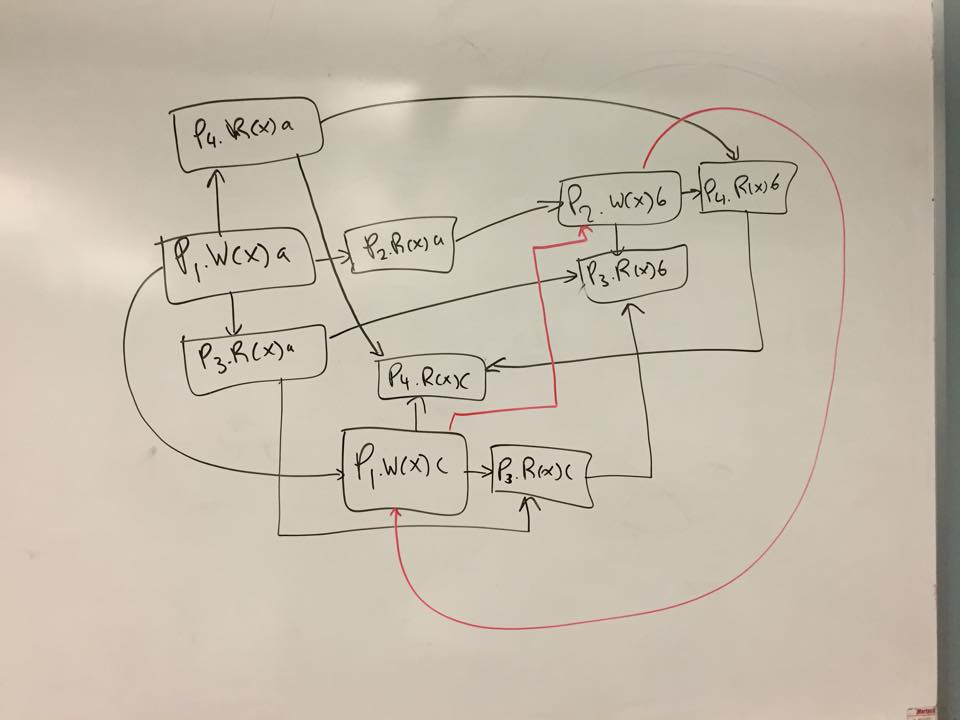 P4.R(x)a
P2.W(x)b
P4.R(x)b
P1.W(x)a
P2.R(x)a
P3.R(x)b
P3.R(x)a
P4.R(x)c
P1.W(x)c
P3.R(x)c